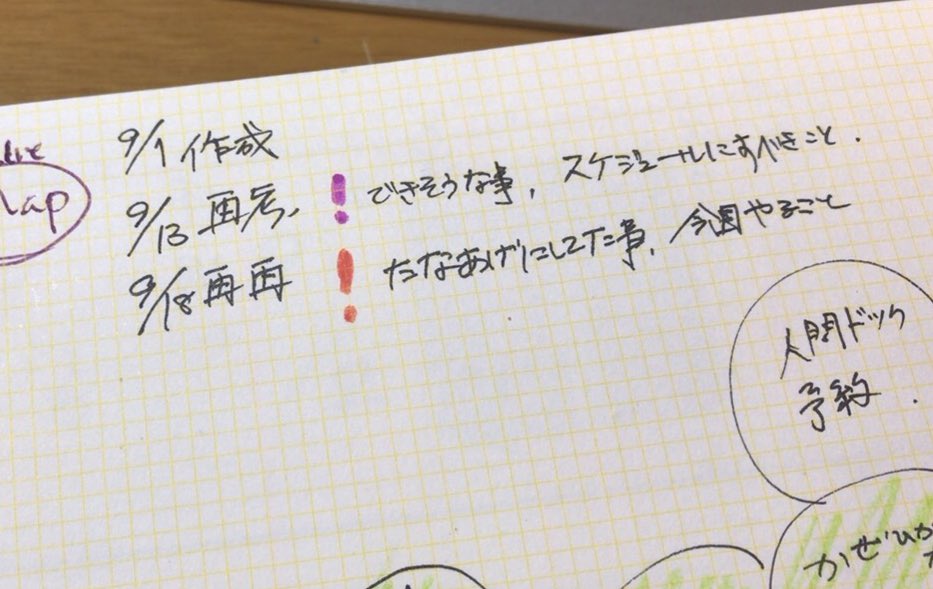 9/1 作成
9/13 再考、 ! できそうな事, スケジュールにすべきこと.
9/18 再再 ! たなあげにしてた事, 今週やること
人間ドック
予約.
かぜひか